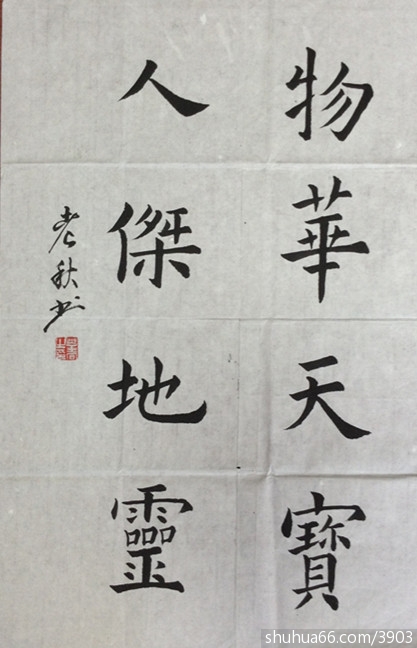 物華天寶
人傑地靈
老秋书
shuhua66.com/3903